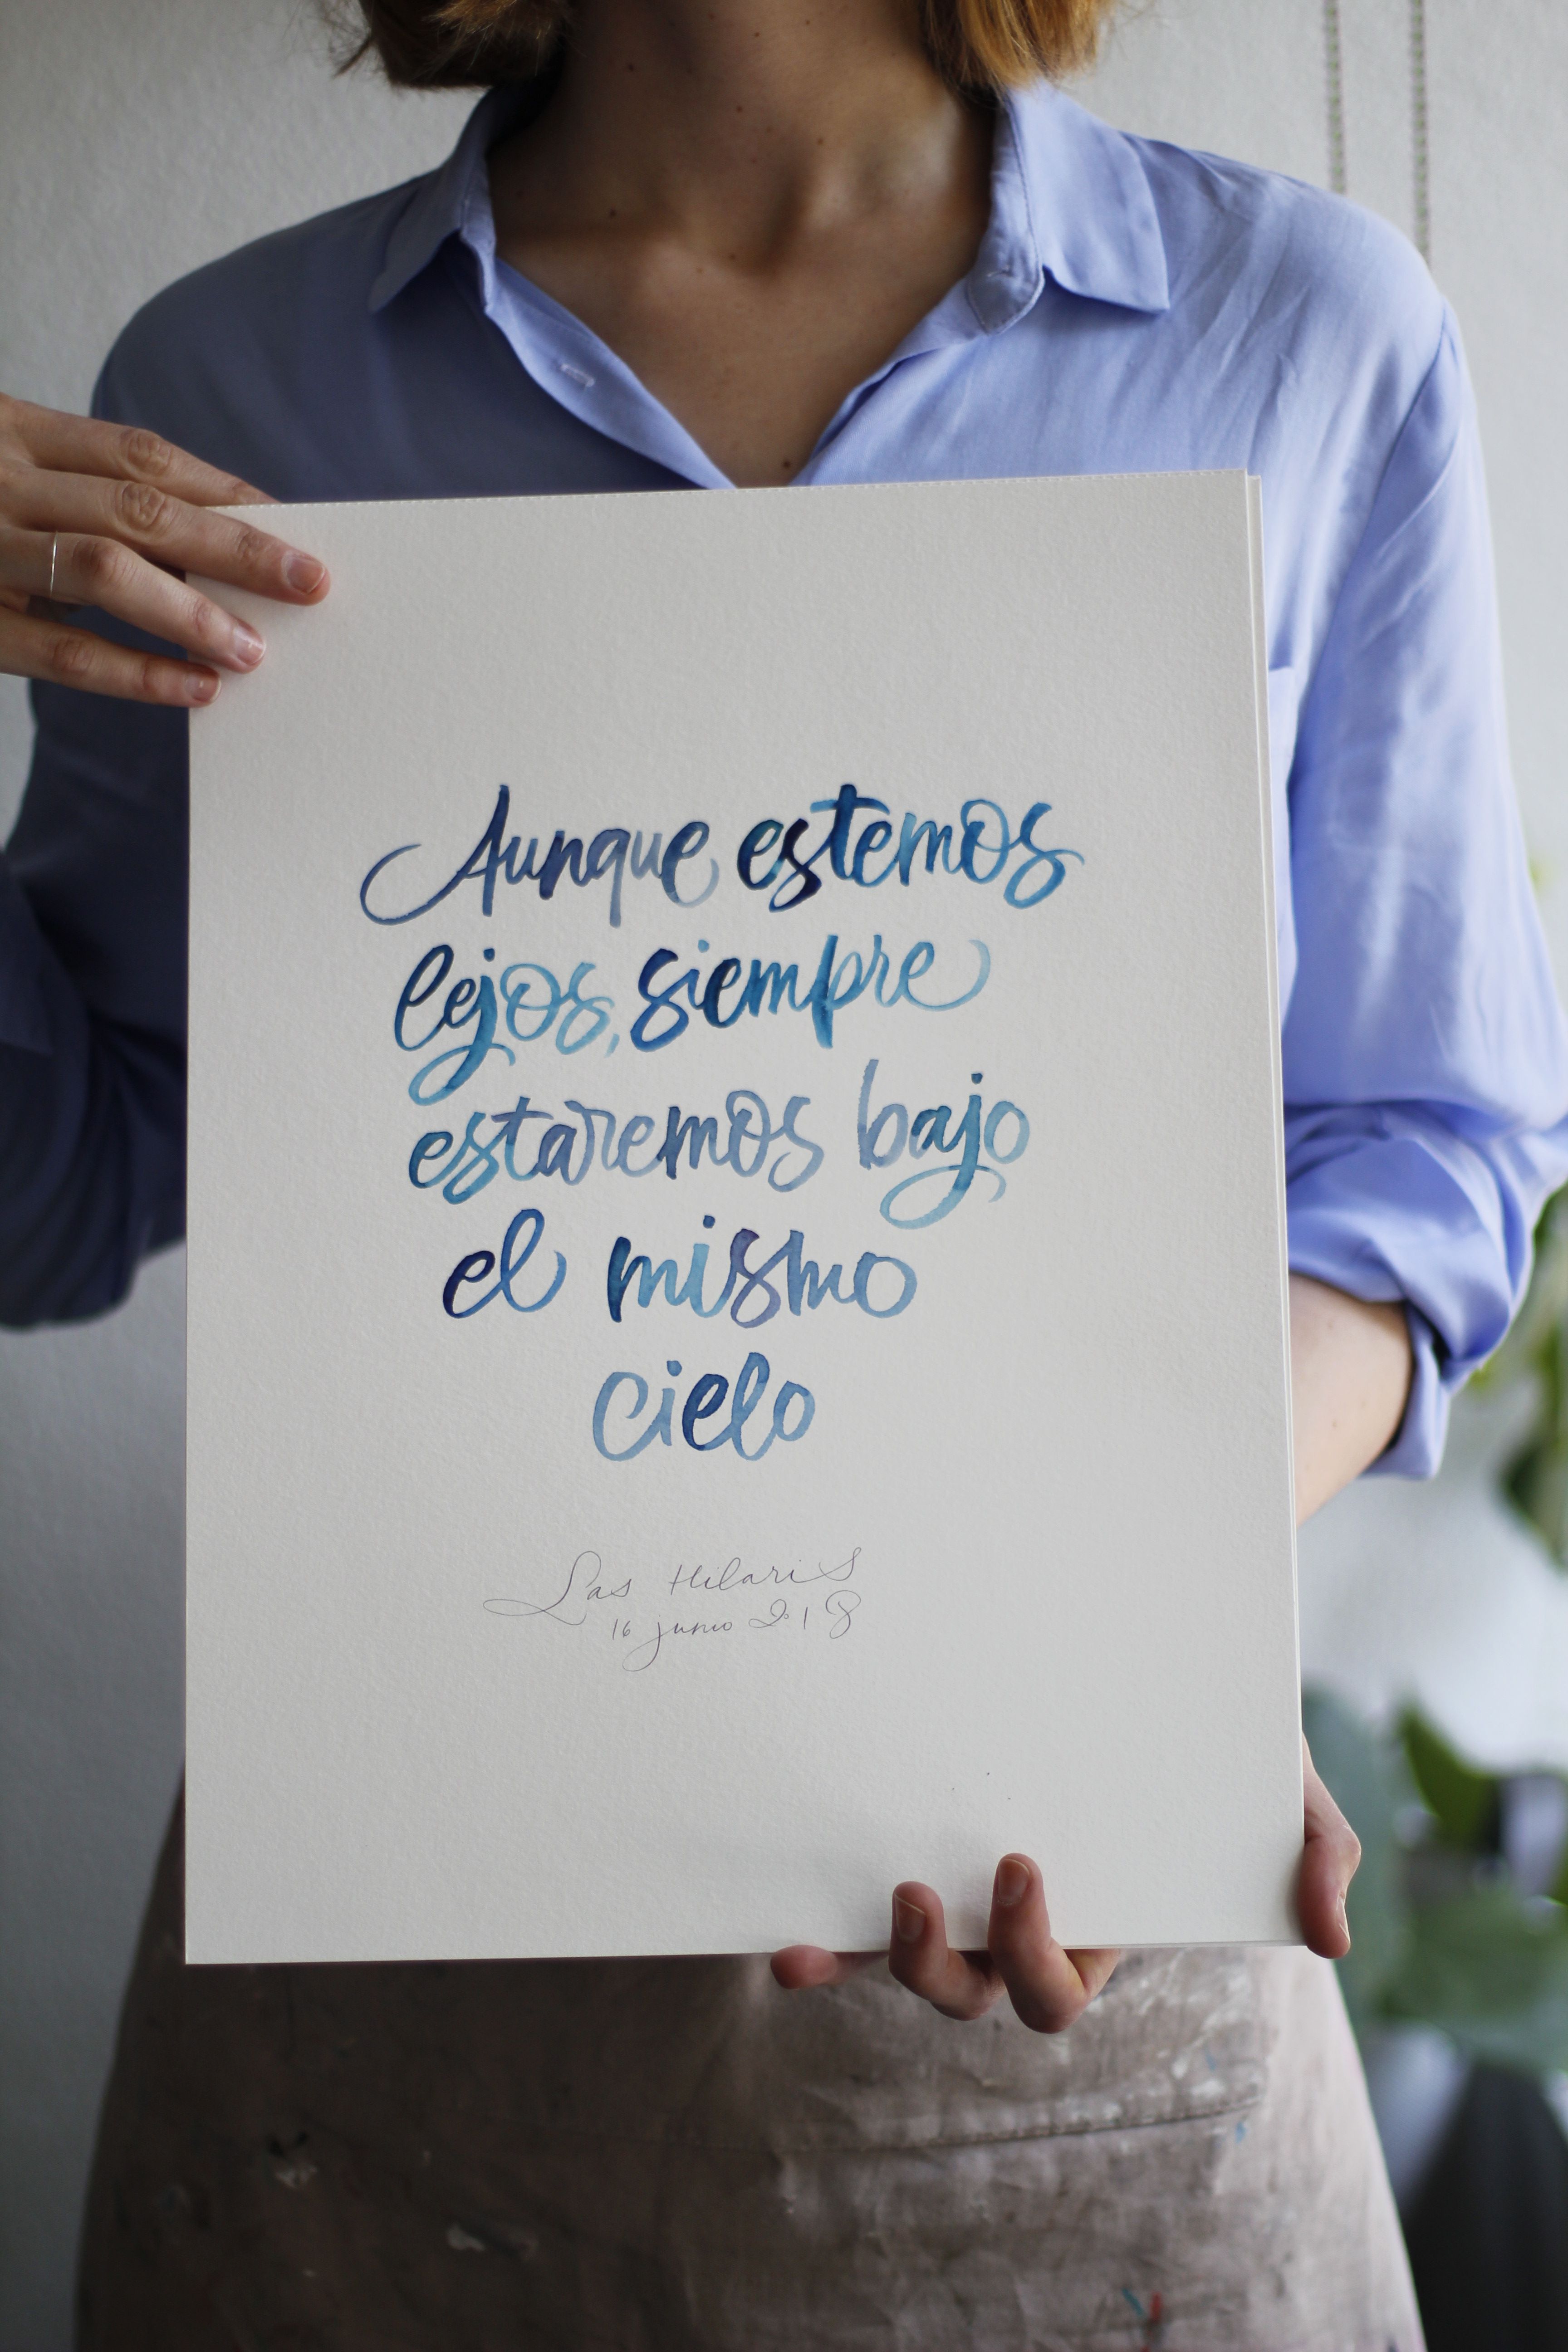 Aunque estemos
lejos, siempre
estaremos bajo
el mismo
cielo
Las Hilaris
16 junio 2018